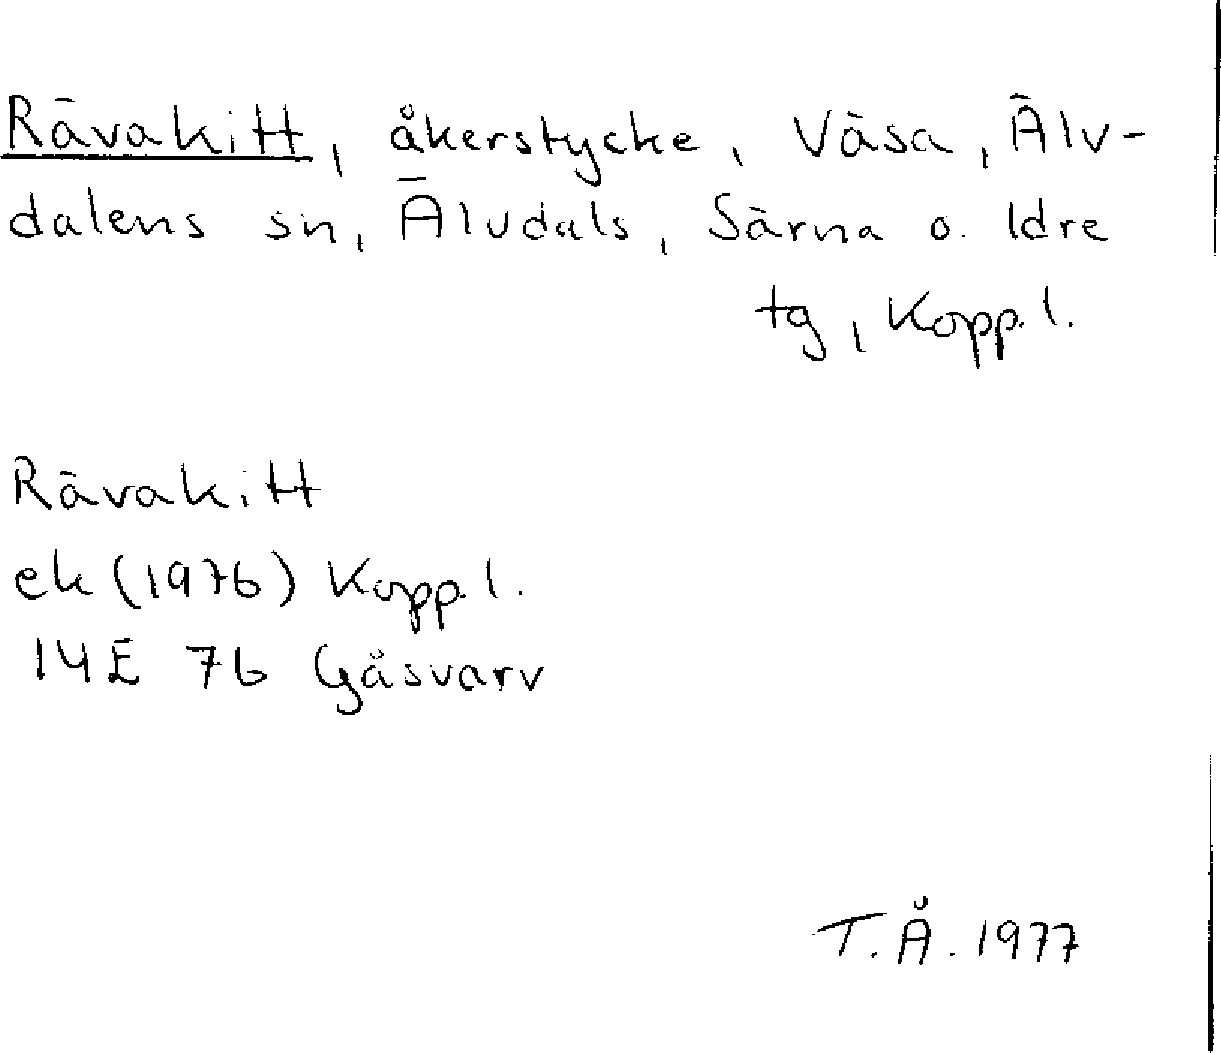 Rävakitt, åkerstycke, Väsa, Älv-
dalens sn, Älvdals, Särna o. Idre
tg, Kopp. l.
Rävakitt
ek (1976) Kopp. l.
14E 7b Gåsvarv
T. Å. 1977